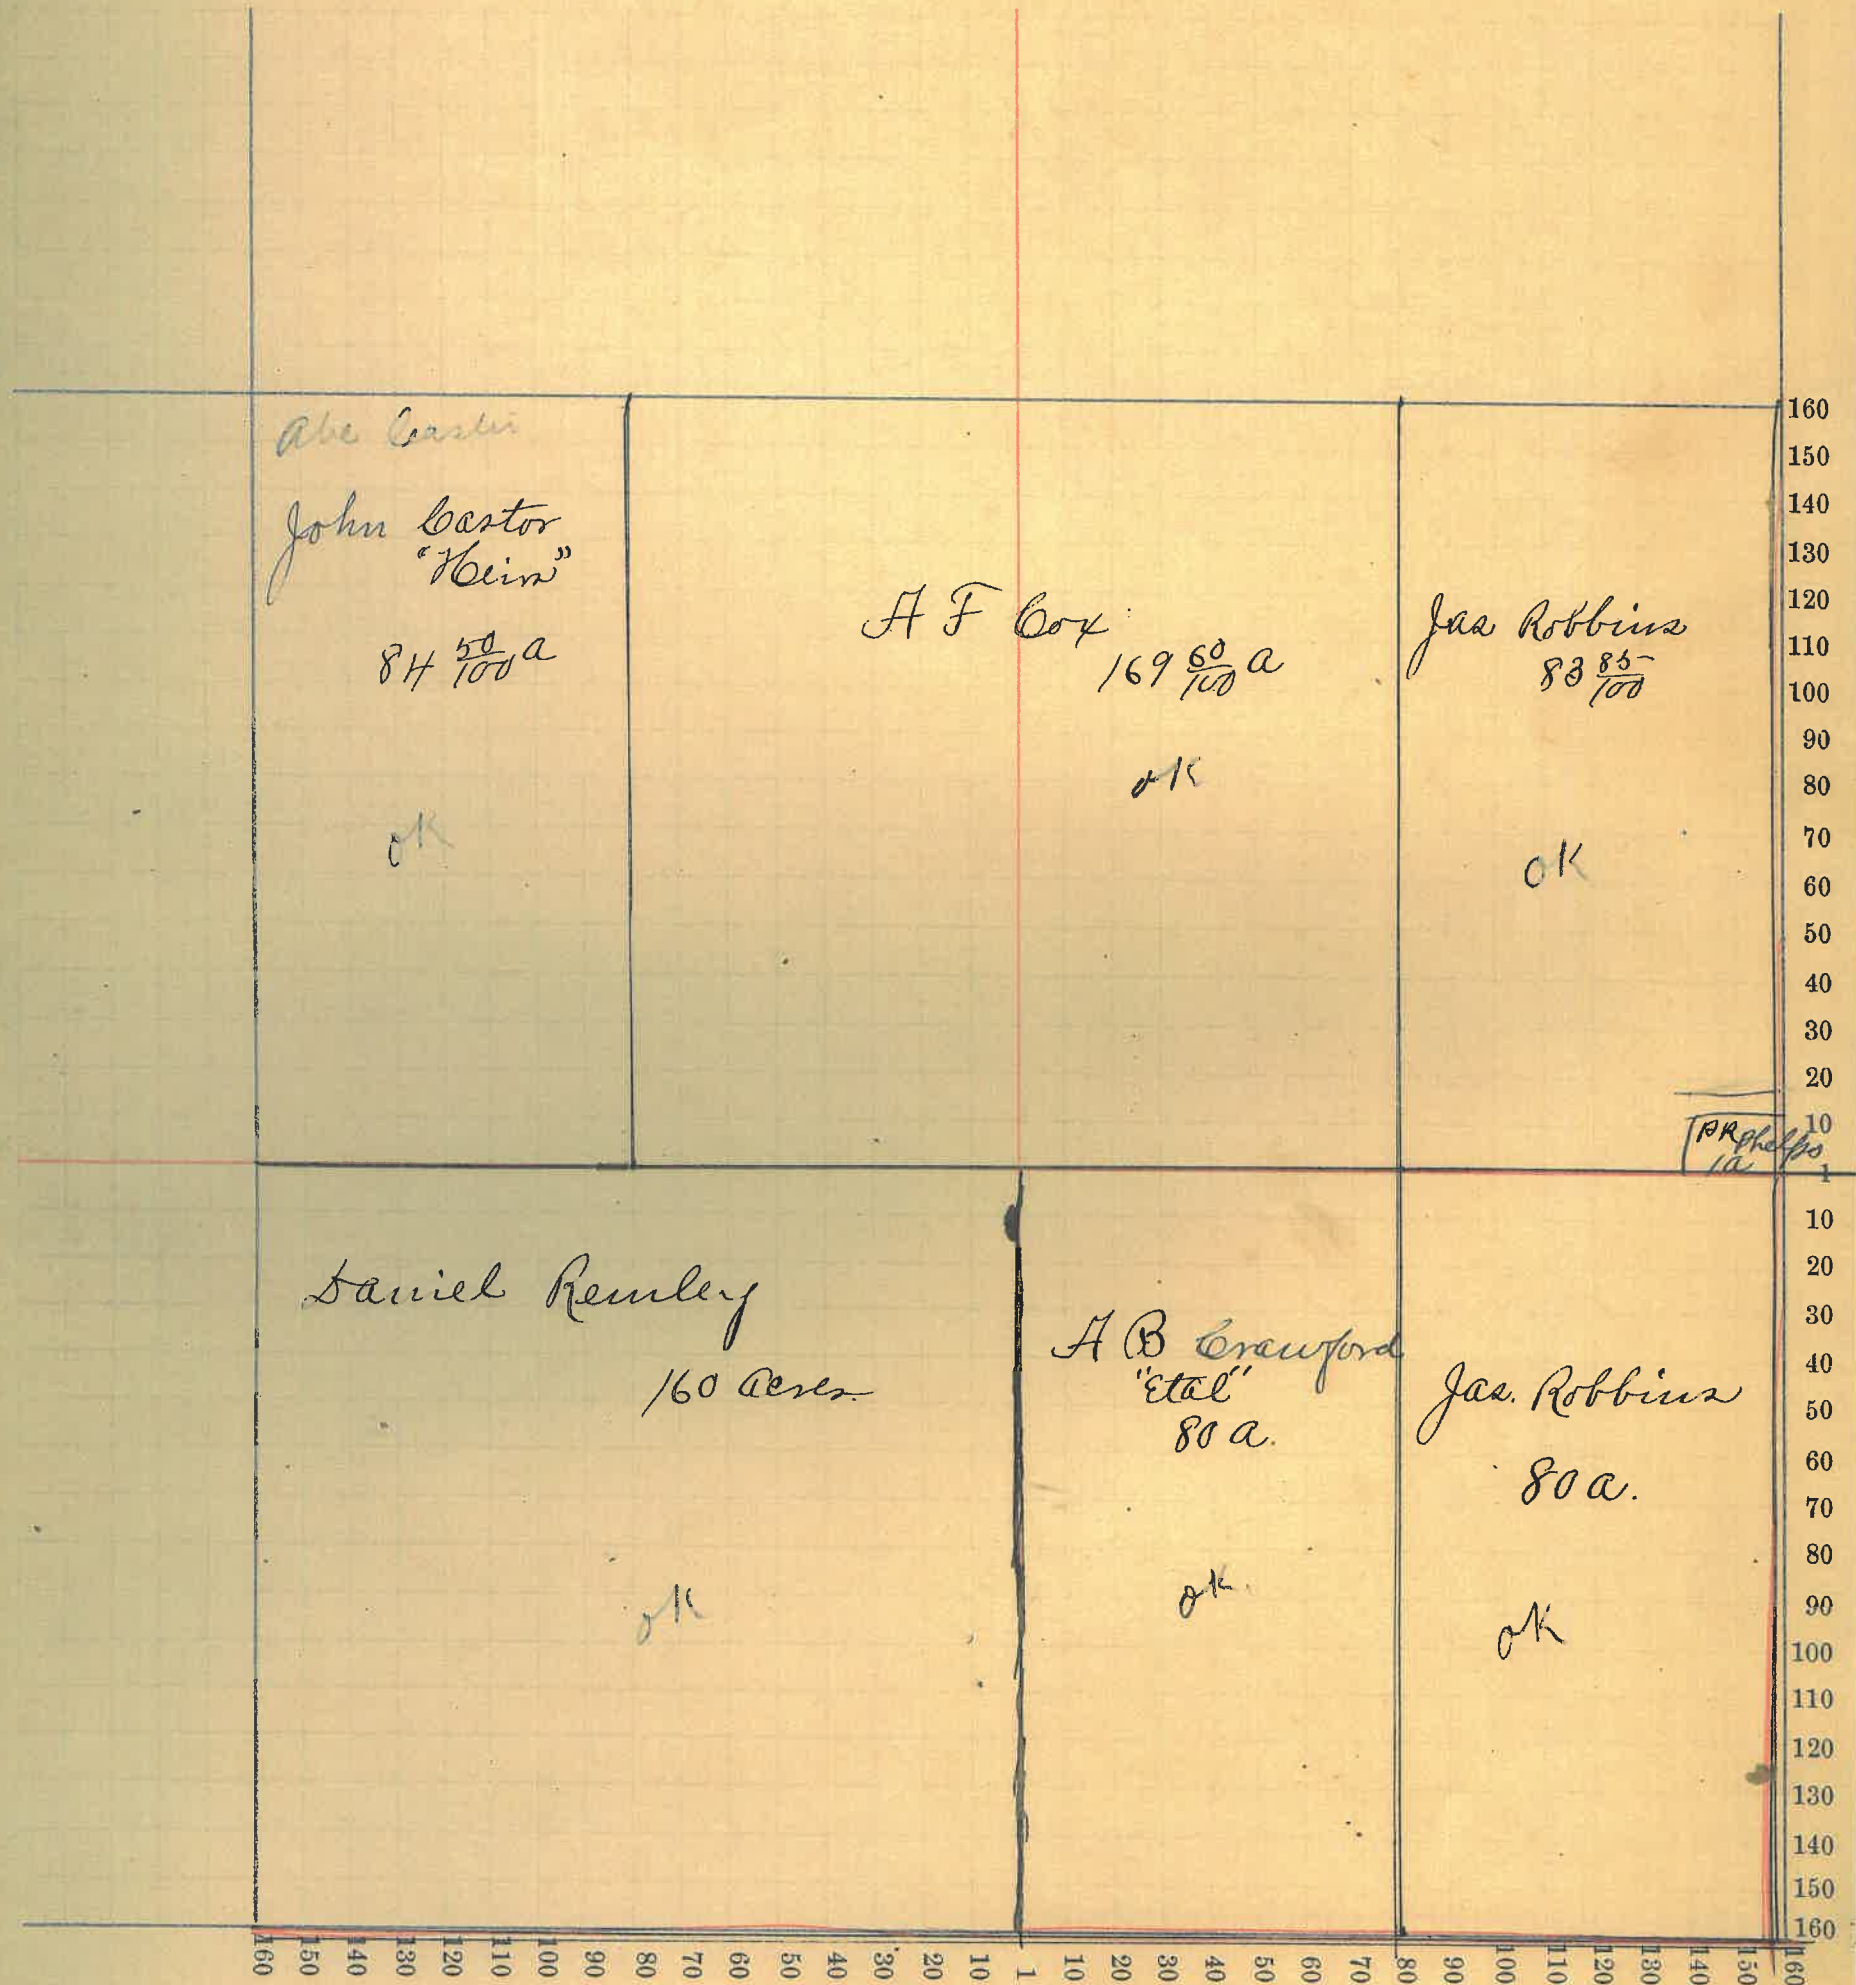 John Castor
"Heirs"
84 50/100 a
ok
A F Cox
169 60/100 a
ok
Jas Robbins
83 85/100
ok
PR Phelps
1a
Daniel Remley
160 Acres
ok
A B Crawford
"Etal"
80 a.
ok.
Jas. Robbins
80 a.
ok
160
150
140
130
120
110
100
90
80
70
60
50
40
30
20
10
1
10
20
30
40
50
60
70
80
90
100
110
120
130
140
150
160
160 150 140 130 120 110 100 90 80 70 60 50 40 30 20 10 1 10 20 30 40 50 60 70 80 90 100 110 120 130 140 150 160